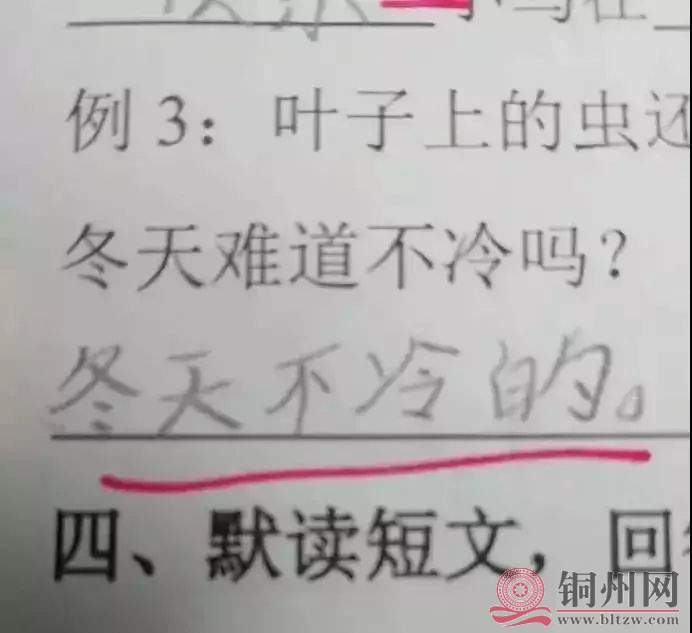 小鸟在
例3：叶子上的虫还
冬天难道不冷吗？
冬天不冷的。
四、默读短文，回
铜州网
www.bltzw.com